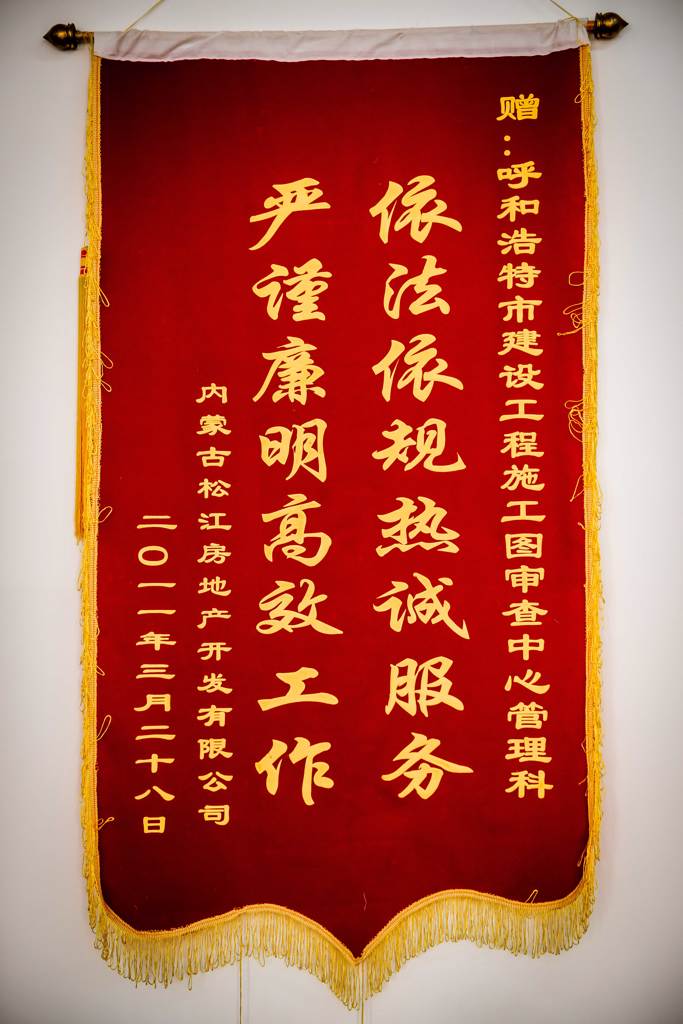 赠：呼和浩特市建设工程施工图审查中心管理科
依法依规热诚服务
严谨廉明高效工作
内蒙古松江房地产开发有限公司
二〇一一年三月二十八日